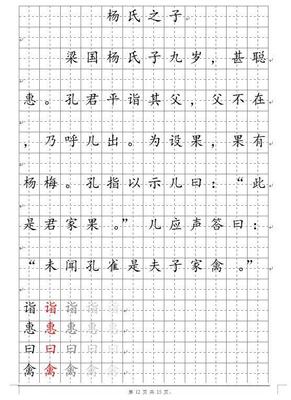 杨氏之子
梁国杨氏子九岁，甚聪
惠。孔君平诣其父，父不在
，乃呼儿出。为设果，果有
杨梅。孔指以示儿曰：“此
是君家果。”儿应声答曰：
“未闻孔雀是夫子家禽。”
诣诣诣诣诣
惠惠惠惠惠
曰曰曰曰曰
禽禽禽禽禽
第 12 页 共 15 页。